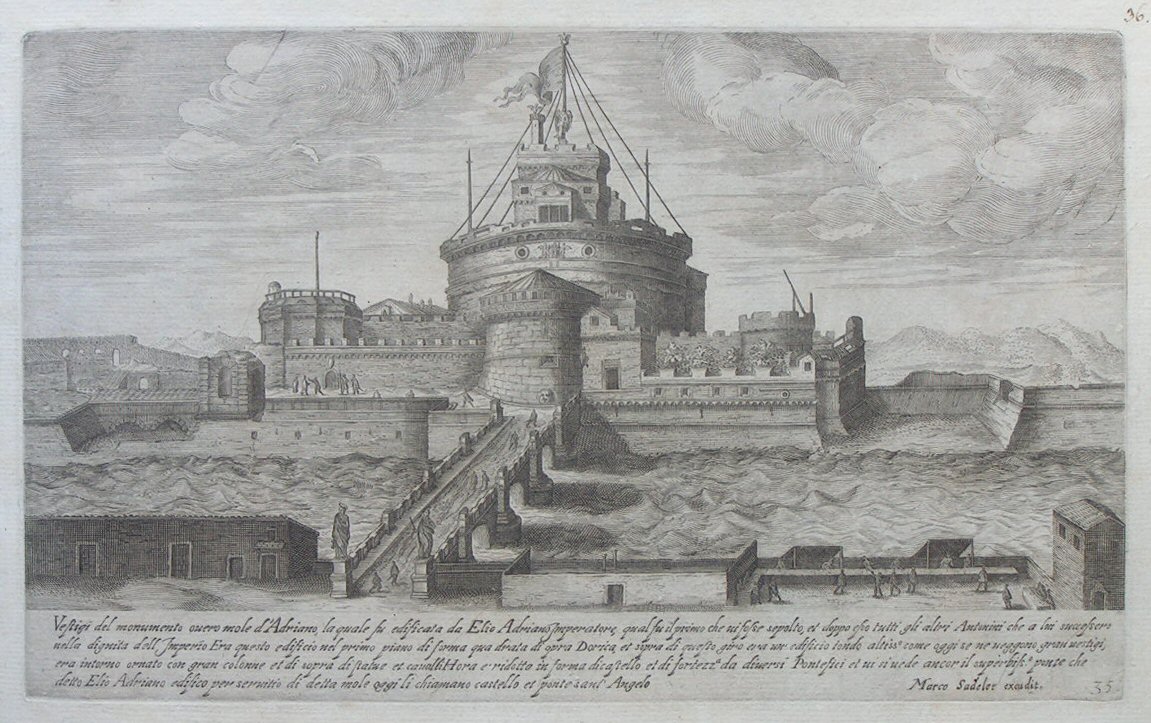 36.
Vestigi del monumento ouero mole d'Adriano, la quale fu edificata da Elio Adriano Imperatore, qual fu il primo che ui fosse sepolto, et doppo esso tutti gli altri Antonini che a lui successero
nella dignita dell'Imperio Era questo edificio nel primo piano di forma quadrata di opra Dorica, et sopra di questo giro era un edificio tondo altiss.º come oggi se ne ueggono gran uestigi,
era intorno ornato con gran colonne et di soprà di statue et cavalli. Hora e ridotto in forma di castello et di fortezz.ª da diuersi Pontefici et ui si uede ancor il superbiss.º ponte che
detto Elio Adriano edifico per seruitio di detta mole oggi li chiamano castello et ponte sant' Angelo
Marco Sadeler excudit.
35